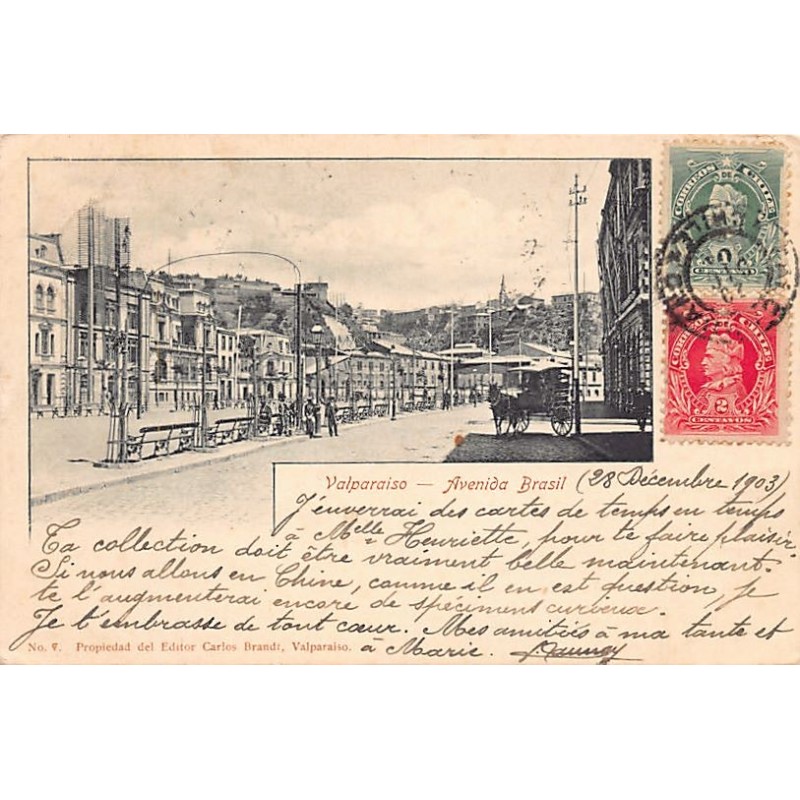 CORREOS DE CHILE
CENTAVO
CORREOS DE CHILE
2 2
CENTAVOS
Valparaiso — Avenida Brasil (28 Décembre 1903)
J'enverrai des cartes de temps en temps
à Melle Henriette, pour te faire plaisir.
Ta collection doit être vraiment belle maintenant.
Si nous allons en Chine, comme il en est question, je
te l'augmenterai encore de spécimens curieux.
Je t'embrasse de tout cœur. Mes amitiés à ma tante et
à Marie.
No. 7. Propiedad del Editor Carlos Brandt, Valparaiso.